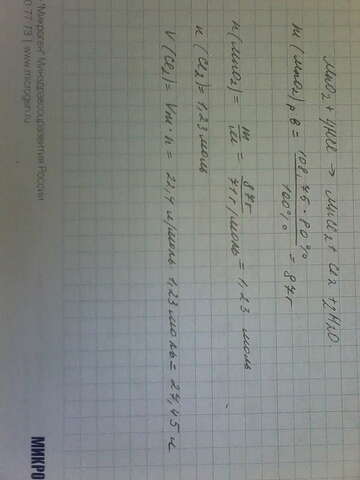 MnO2 + 4HCl → MnCl2 + Cl2 + 2H2O
m (MnO2) р в = 108,75 · 80% / 100% = 87г
n (MnO2) = m / M = 87г / 71 г/моль = 1,23 моль
n (Cl2) = 1,23 моль
V (Cl2) = Vm · n = 22,4 л/моль · 1,23 моль = 27,45 л
"Микроген" Минздравсоцразвития России
0 77 13 | www.microgen.ru
МИКРО